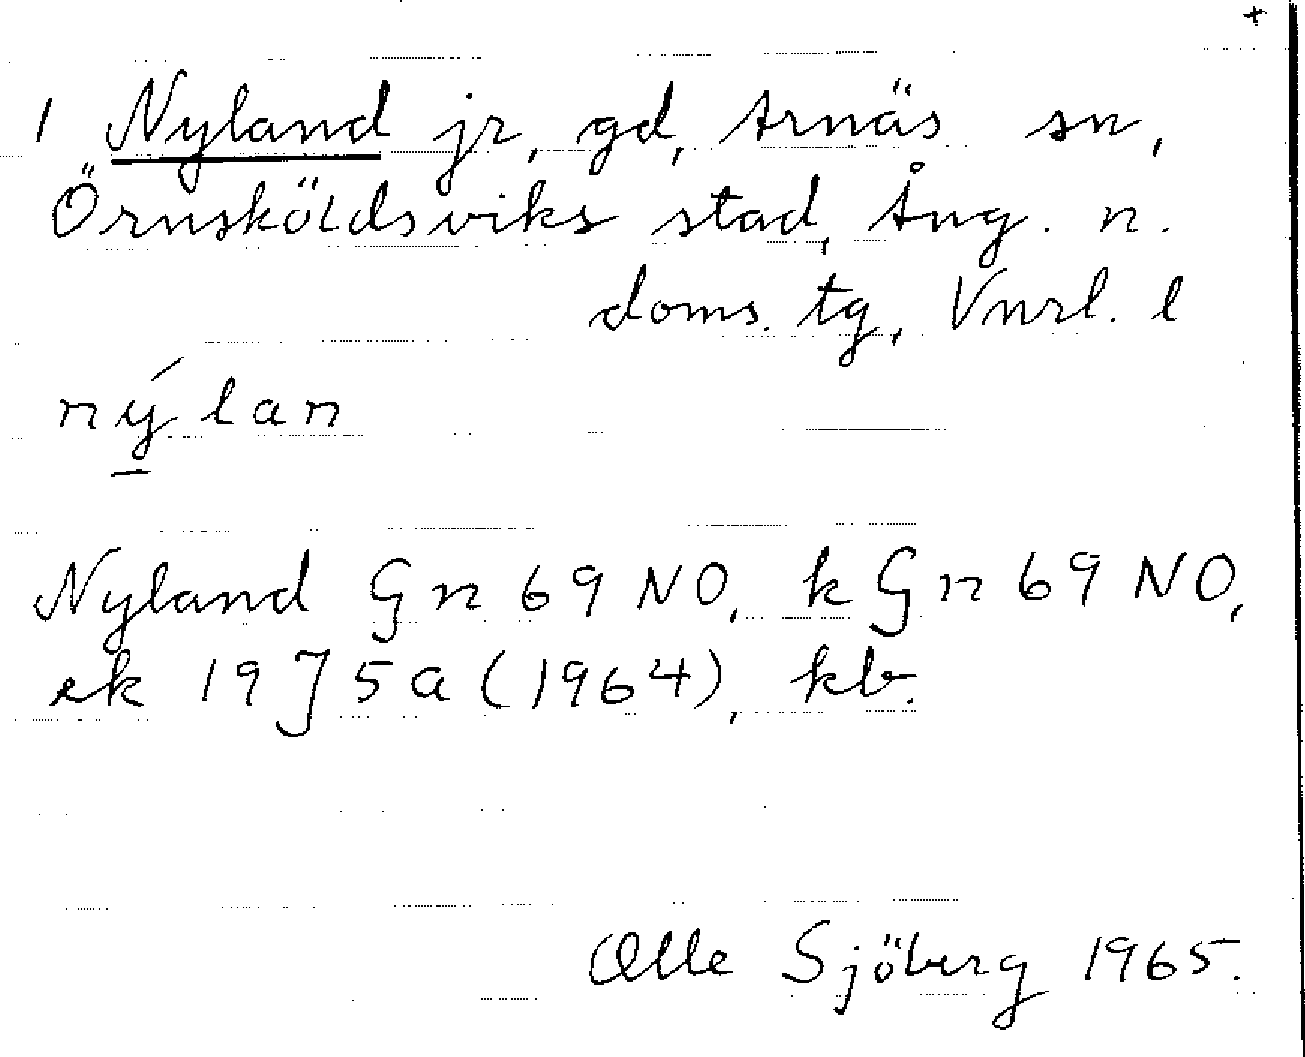 +
1 Nyland jr, gd, Arnäs sn,
Örnsköldsviks stad, Ång. n.
doms. tg, Vnrl. l
nýlan
Nyland Gn 69 NO, k Gn 69 NO,
ek 19 J 5 a (1964), kb.
Olle Sjöberg 1965.